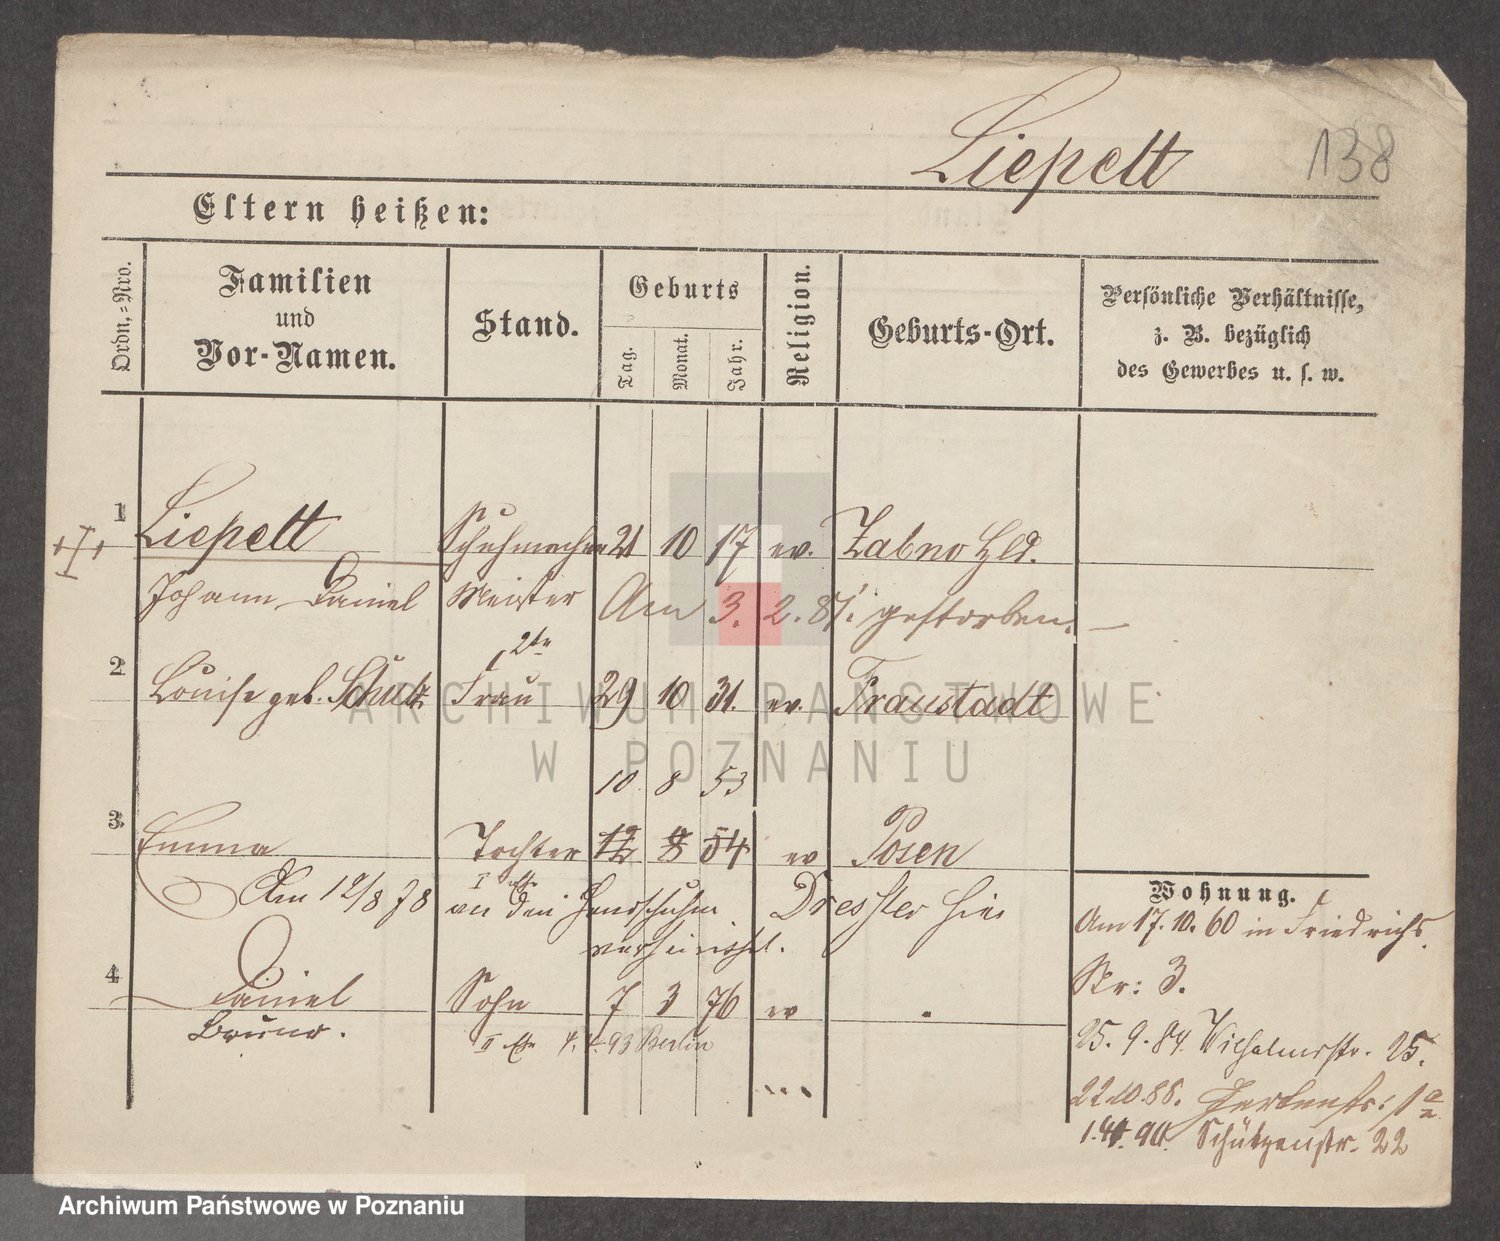 Liepelt 138
Eltern heißen:
Ordn.-Nro.
Familien
und
Vor-Namen.
Stand.
Geburts
Tag.
Monat.
Jahr.
Religion.
Geburts-Ort.
Persönliche Verhältnisse,
z. B. bezüglich
des Gewerbes u. s. w.
1 Liepelt Schuhmacher 21 10 17 ev. Zabno Hld.
Johann Daniel Meister Am 3. 2. 81. gestorben.
2te
2 Louise geb. Schulz Frau 29 10 31. ev. Fraustadt
10 8 53
3 Emma Tochter 12 8 54 ev Posen
Am 12/8 78 an den Handschuhm. Dressler hier
verheirathet.
4 Daniel Sohn 7 3 76 ev
Bruno.
II 93 Berlin
Wohnung.
Am 17. 10. 60 in Friedrichs
Str: 3.
25. 9. 84. Wilhelmstr. 25.
22.10.88.
1.4. 90. Schützenstr. 22
ARCHIWUM PAŃSTWOWE
W POZNANIU
Archiwum Państwowe w Poznaniu